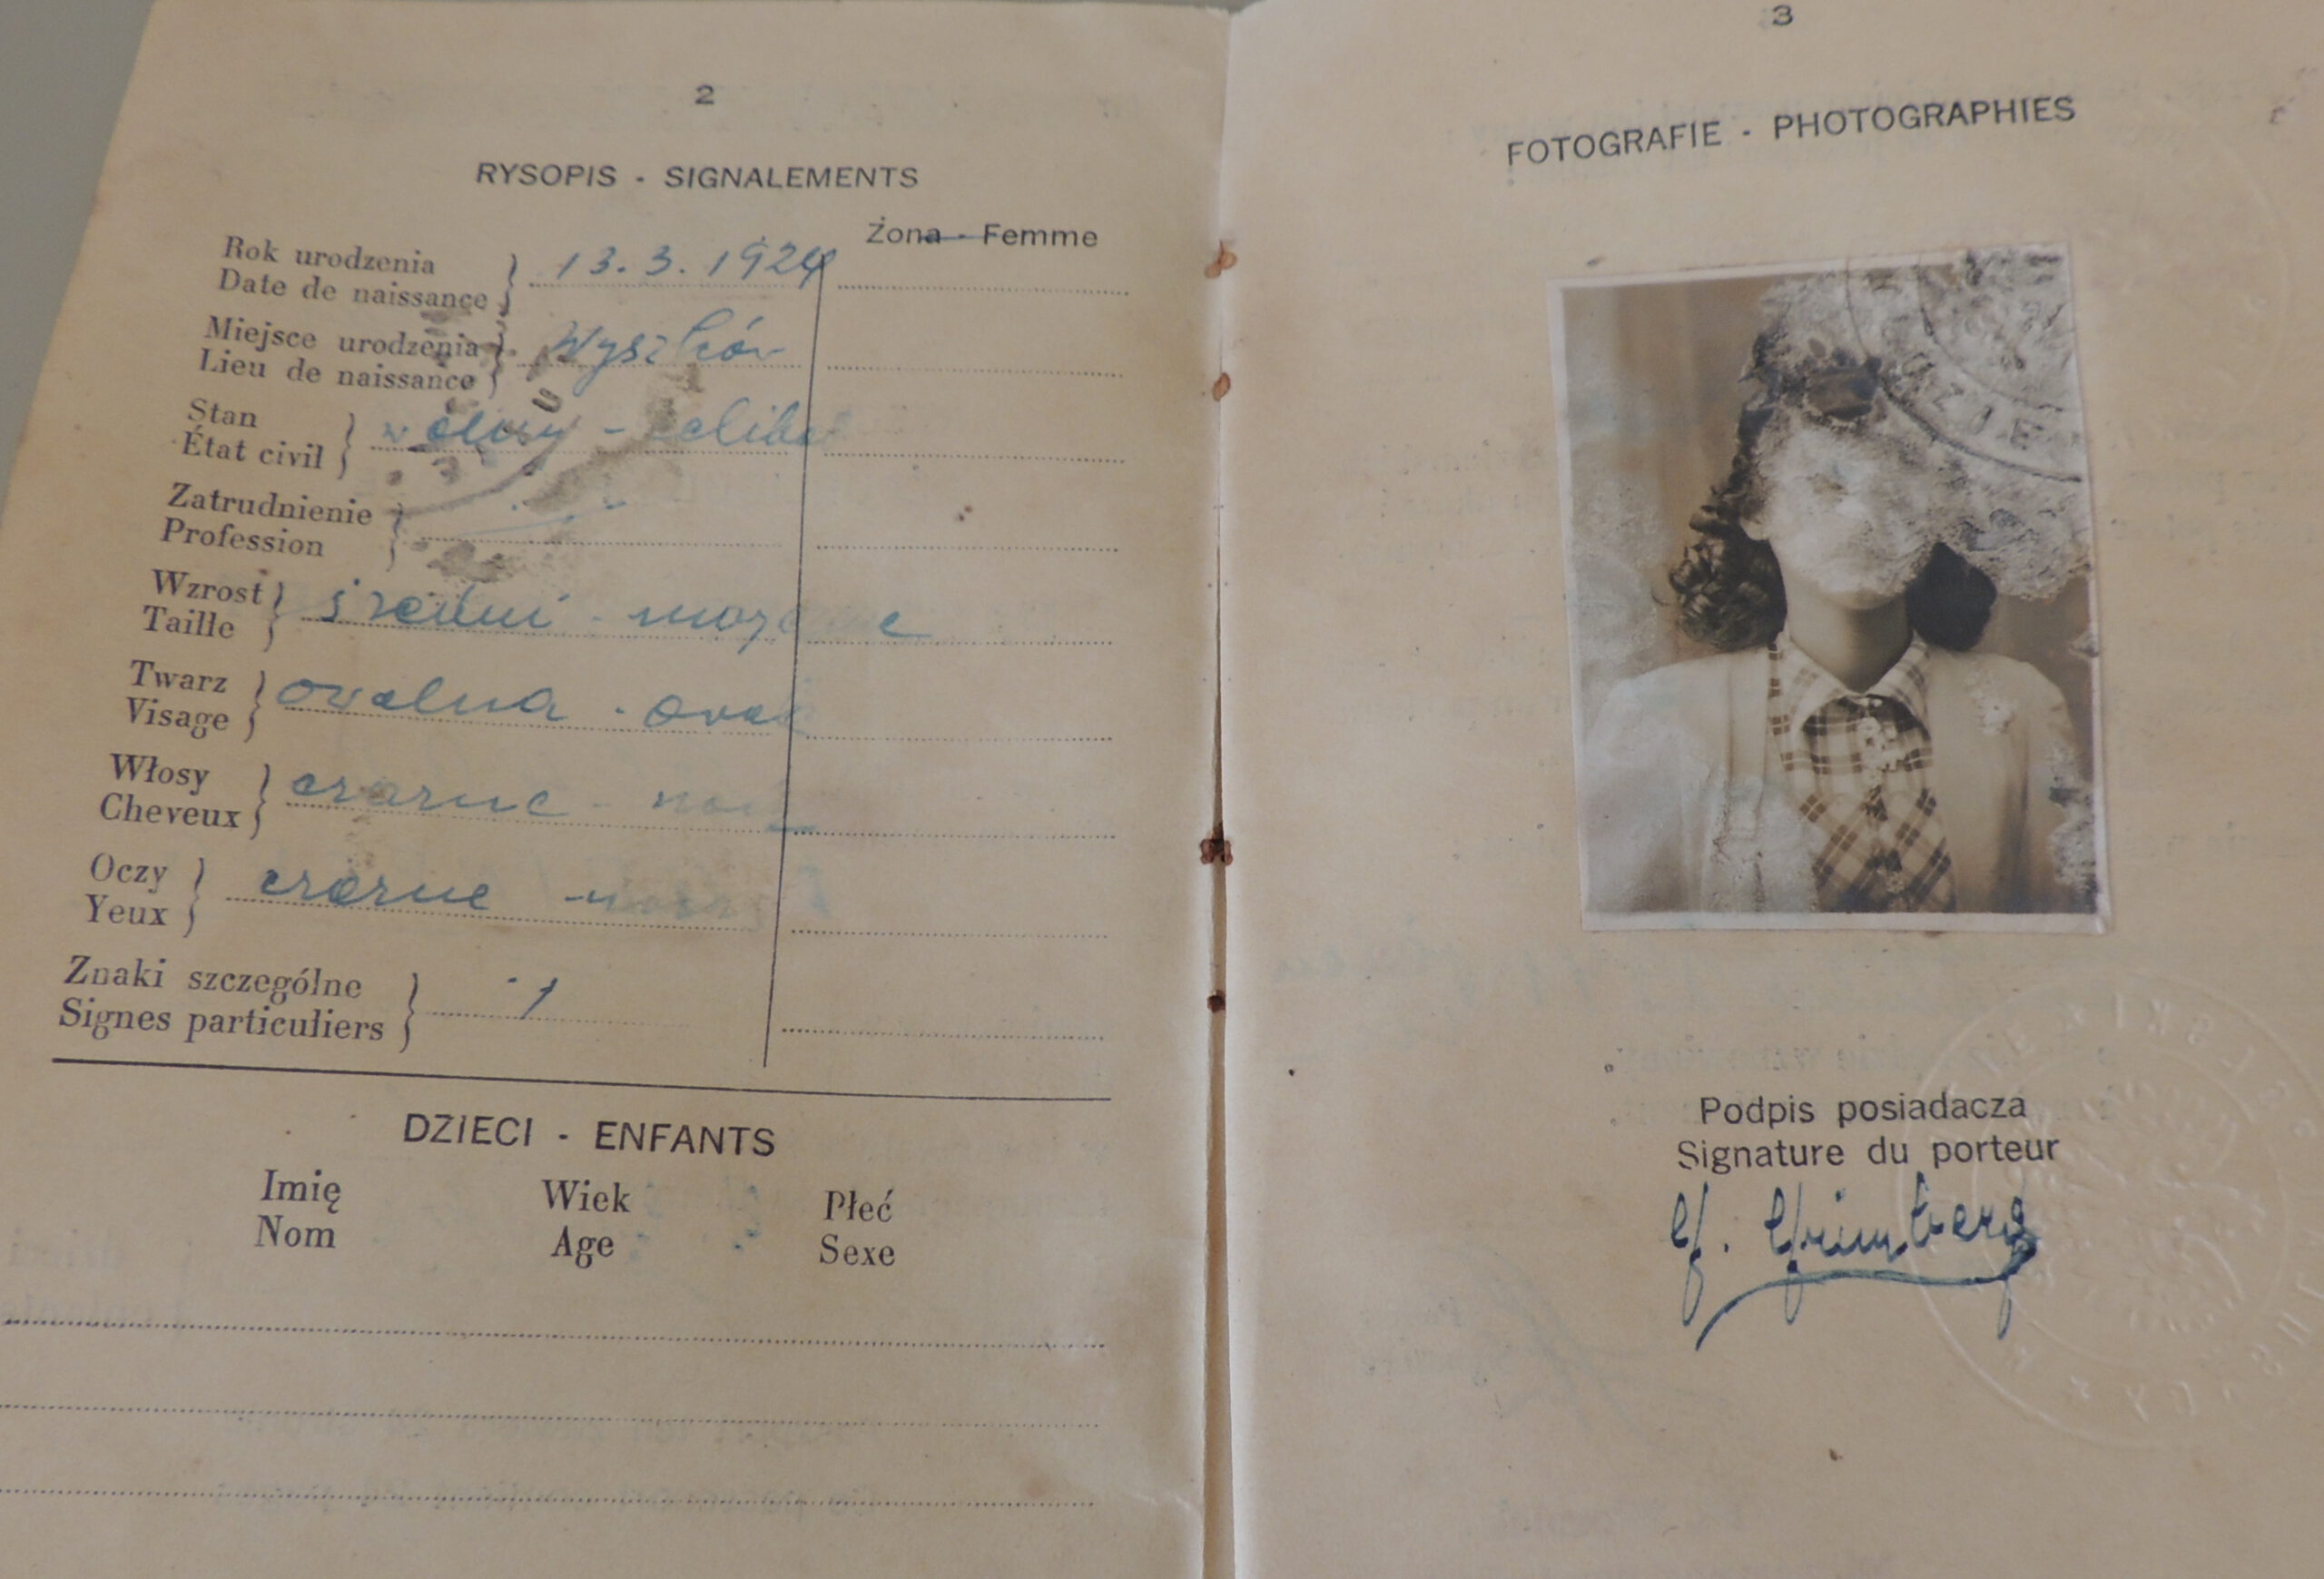 2
RYSOPIS - SIGNALEMENTS
Żona - Femme
Rok urodzenia
Date de naissance
13.3.1924
Miejsce urodzenia
Lieu de naissance
Wyszków
Stan
État civil
wolny -
Zatrudnienie
Profession
Wzrost
Taille
średni -
Twarz
Visage
owalna -
Włosy
Cheveux
czarne -
Oczy
Yeux
czarne -
Znaki szczególne
Signes particuliers
DZIECI - ENFANTS
Imię Wiek Płeć
Nom Age Sexe
3
FOTOGRAFIE - PHOTOGRAPHIES
Podpis posiadacza
Signature du porteur